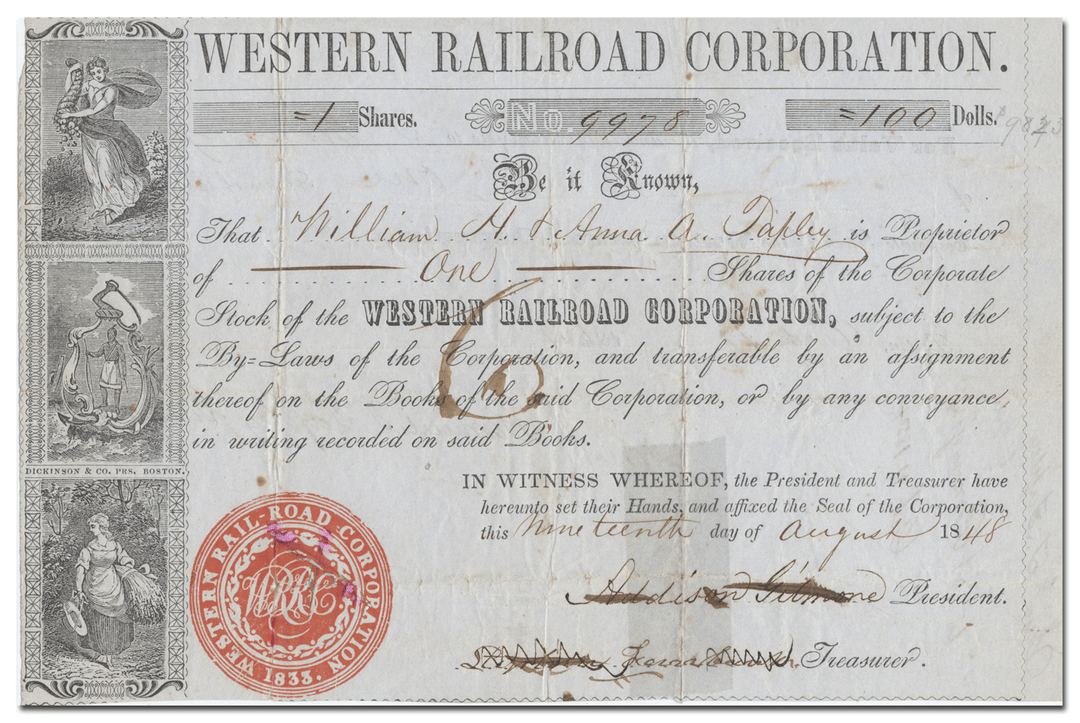 WESTERN RAILROAD CORPORATION.
=1 Shares. No. 9978 =100 Dolls.
Be it Known,
That William H. & Anna A. Tapley is Proprietor
of One Shares of the Corporate
Stock of the WESTERN RAILROAD CORPORATION, subject to the
By=Laws of the Corporation, and transferable by an assignment
thereof on the Books of the said Corporation, or by any conveyance,
in writing recorded on said Books.
DICKINSON & CO. PRS. BOSTON.
IN WITNESS WHEREOF, the President and Treasurer have
hereunto set their Hands, and affixed the Seal of the Corporation,
this Nineteenth day of August 1848
Addison Gilmore President.
Treasurer.
WESTERN RAIL-ROAD CORPORATION
WRRC
1833.